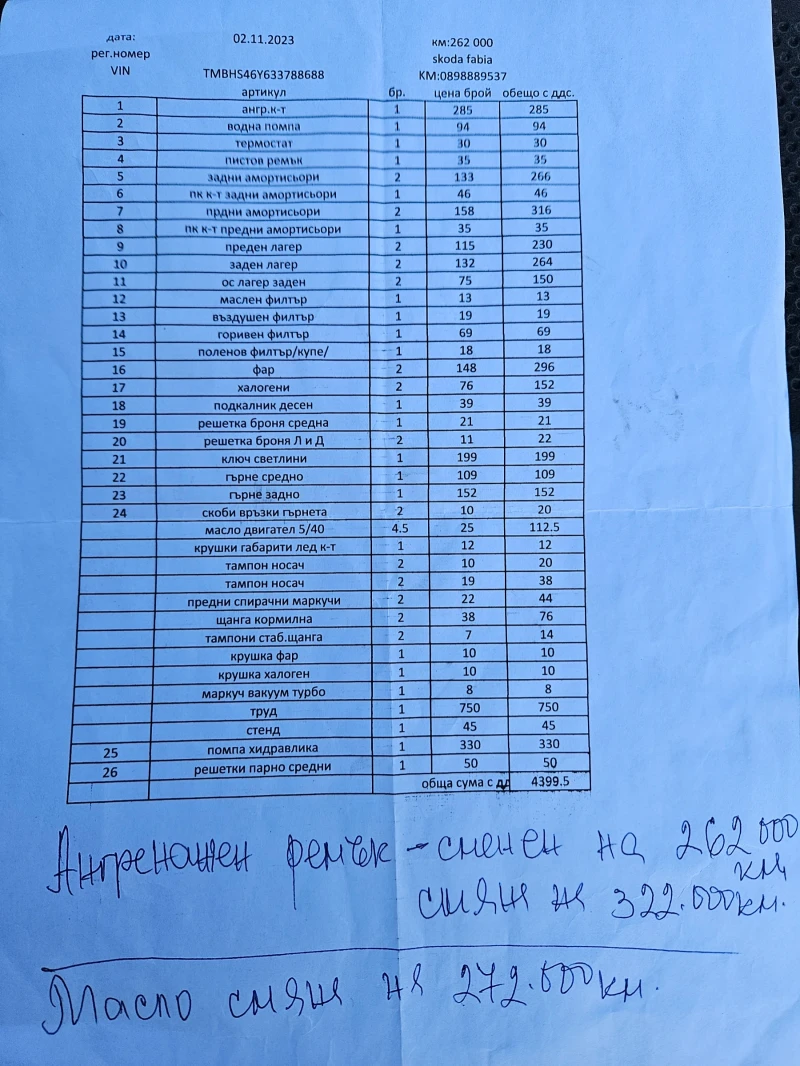 дата: 02.11.2023 км:262 000
рег.номер skoda fabia
VIN TMBHS46Y633788688 КМ:0898889537
артикул бр. цена брой обещо с ддс.
1 ангр.к-т 1 285 285
2 водна помпа 1 94 94
3 термостат 1 30 30
4 пистов ремък 1 35 35
5 задни амортисьори 2 133 266
6 пк к-т задни амортисьори 1 46 46
7 прдни амортисьори 2 158 316
8 пк к-т предни амортисьори 1 35 35
9 преден лагер 2 115 230
10 заден лагер 2 132 264
11 ос лагер заден 2 75 150
12 маслен филтър 1 13 13
13 въздушен филтър 1 19 19
14 горивен филтър 1 69 69
15 поленов филтър/купе/ 1 18 18
16 фар 2 148 296
17 халогени 2 76 152
18 подкалник десен 1 39 39
19 решетка броня средна 1 21 21
20 решетка броня Л и Д 2 11 22
21 ключ светлини 1 199 199
22 гърне средно 1 109 109
23 гърне задно 1 152 152
24 скоби връзки гърнета 2 10 20
масло двигател 5/40 4.5 25 112.5
крушки габарити лед к-т 1 12 12
тампон носач 2 10 20
тампон носач 2 19 38
предни спирачни маркучи 2 22 44
щанга кормилна 2 38 76
тампони стаб.щанга 2 7 14
крушка фар 1 10 10
крушка халоген 1 10 10
маркуч вакуум турбо 1 8 8
труд 1 750 750
стенд 1 45 45
25 помпа хидравлика 1 330 330
26 решетки парно средни 1 50 50
обща сума с дд 4399.5
Ангренажен ремък - сменен на 262 000
км
смяна на 322.000км.
Масло смяна на 272.000км.